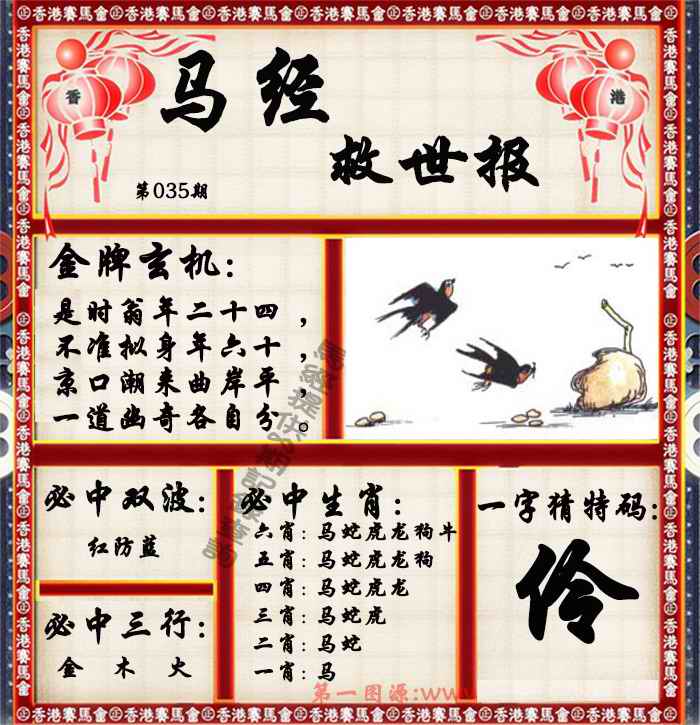 香港賽馬會
香
港
马经
救世报
第035期
金牌玄机：
是时翁年二十四，
不准拟身年六十，
京口潮来曲岸平，
一道幽奇各自分。
必中双波：
红防蓝
必中三行：
金 木 火
必中生肖：
六肖：马蛇虎龙狗牛
五肖：马蛇虎龙狗
四肖：马蛇虎龙
三肖：马蛇虎
二肖：马蛇
一肖：马
一字猜特码：
伶
第一图源:www